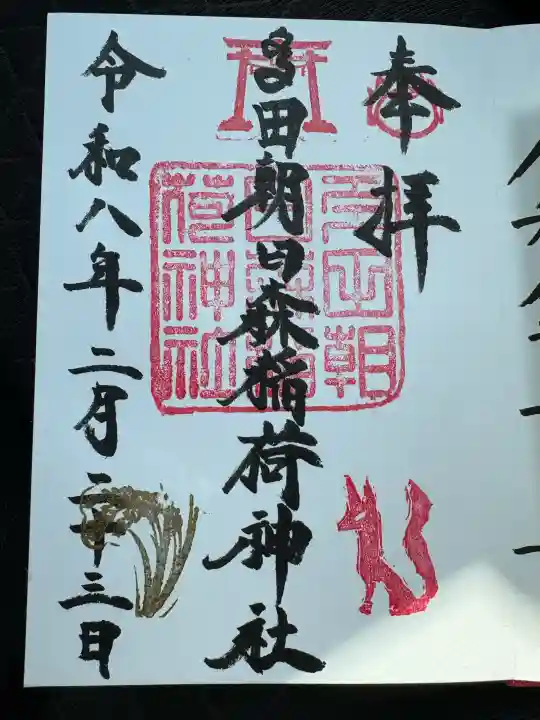 奉拝
多田朝日森稲荷神社
令和八年二月二十三日
多田朝
日森稲
荷神社